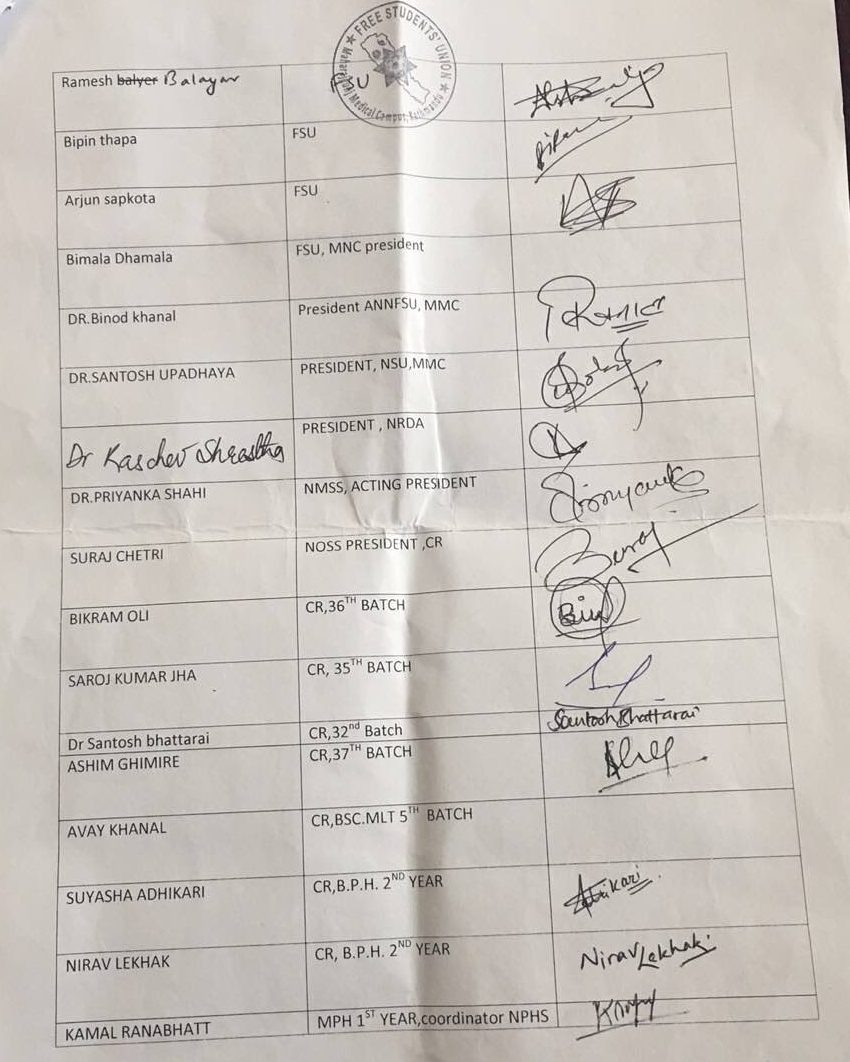 ★ FREE STUDENTS' UNION ★
Medical Campus, Kathmandu
Ramesh balyer Balayar FSU
Bipin thapa FSU
Arjun sapkota FSU
Bimala Dhamala FSU, MNC president
DR.Binod khanal President ANNFSU, MMC
DR.SANTOSH UPADHAYA PRESIDENT, NSU,MMC
Dr Kaschev Shrestha PRESIDENT , NRDA
DR.PRIYANKA SHAHI NMSS, ACTING PRESIDENT
SURAJ CHETRI NOSS PRESIDENT ,CR
BIKRAM OLI CR,36TH BATCH
SAROJ KUMAR JHA CR, 35TH BATCH
Dr Santosh bhattarai CR,32nd Batch Santosh Bhattarai
ASHIM GHIMIRE CR,37TH BATCH
AVAY KHANAL CR,BSC.MLT 5TH BATCH
SUYASHA ADHIKARI CR,B.P.H. 2ND YEAR
NIRAV LEKHAK CR, B.P.H. 2ND YEAR Nirav Lekhak
KAMAL RANABHATT MPH 1ST YEAR,coordinator NPHS